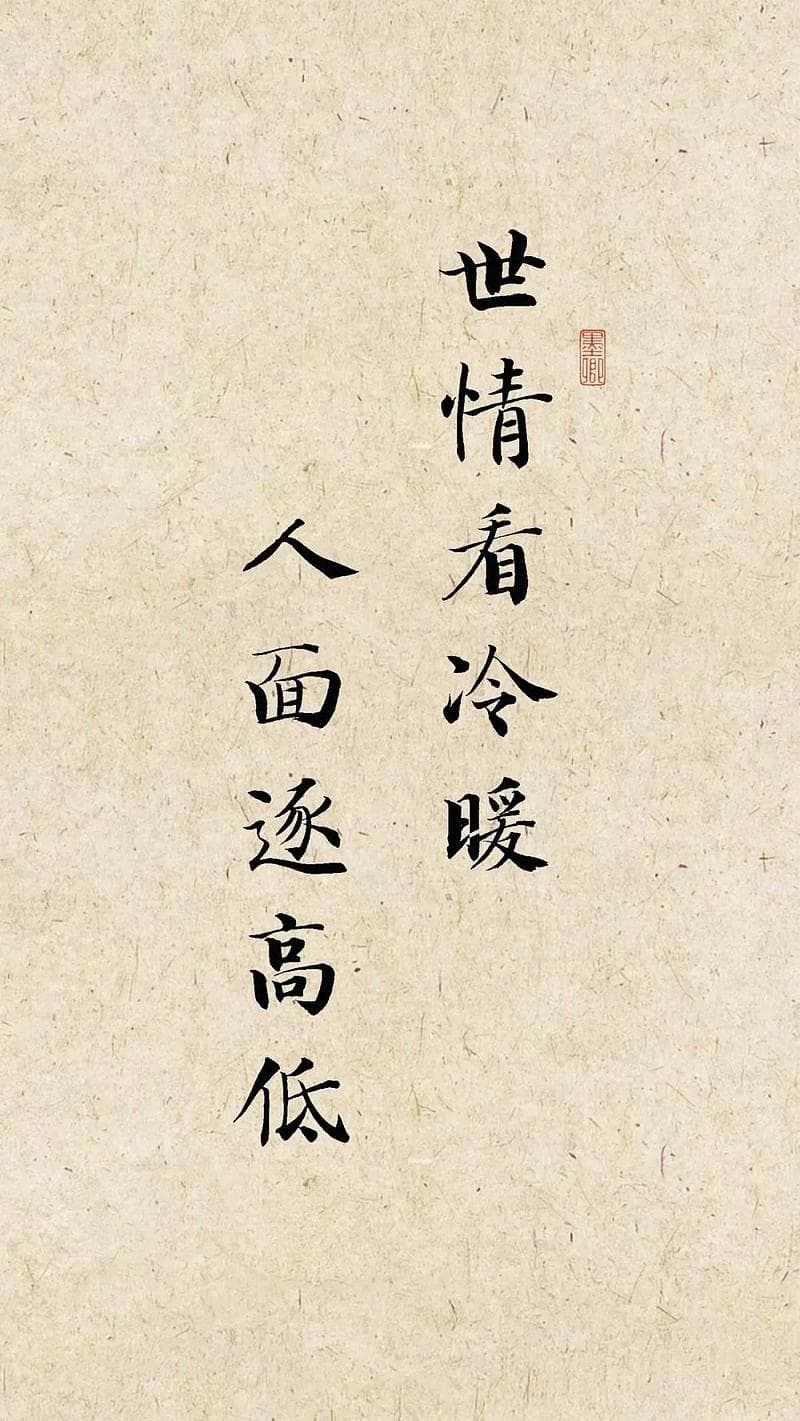 世情看冷暖
人面逐高低
墨卿